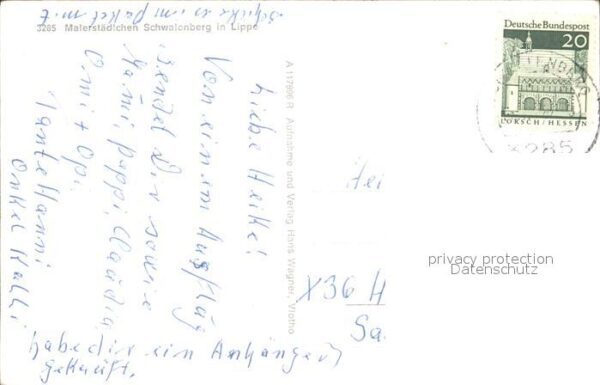 schicke es im paket mit
3285 Malerstädtchen Schwalenberg in Lippe
Liebe Heike!
Von einem Ausflug
sendet Dir sowie
Mami, Pappi, Claudia,
Omi + Opi
Tante Hanni
Onkel Kalli
habe dir ein Anhänger
gekauft.
A 117896 R Aufnahme und Verlag Hans Wagner, Vlotho
Hei
X36 H
Sa.
Deutsche Bundespost
20
LORSCH/HESSEN
3285
privacy protection
Datenschutz